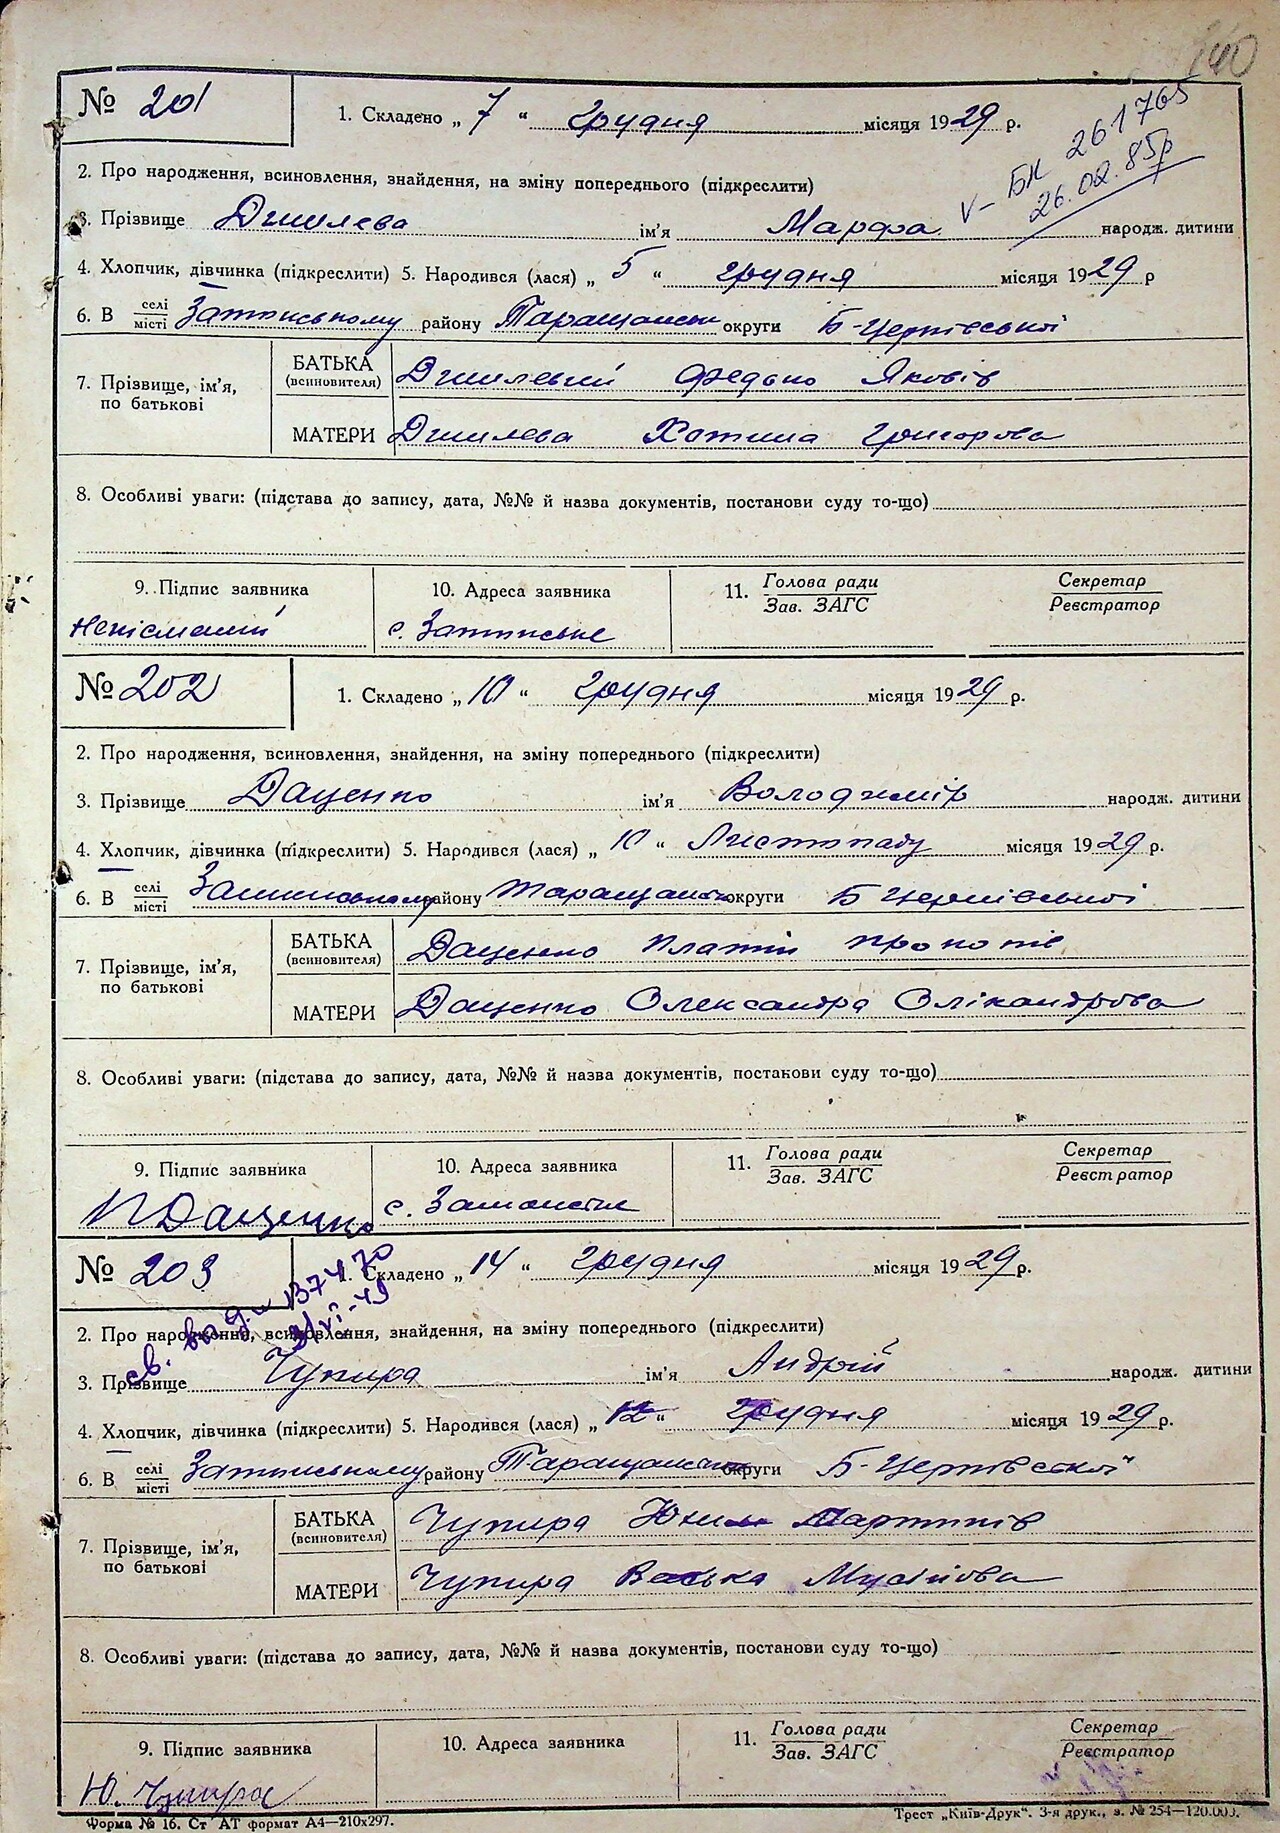 140
№ 201
1. Складено „ 7 “ грудня місяця 1929 р.
V- БК 261765
26.02.85р
2. Про народження, всиновлення, знайдення, на зміну попереднього (підкреслити)
3. Прізвище ім’я Марфа народж. дитини
4. Хлопчик, дівчинка (підкреслити) 5. Народився (лася) „ 5 “ грудня місяця 1929 р
6. В селі
місті району Таращанськ округи Б-Церківської
7. Прізвище, ім’я,
по батькові
БАТЬКА
(всиновителя) Федько Яковів
МАТЕРИ Хотина Григорова
8. Особливі уваги: (підстава до запису, дата, №№ й назва документів, постанови суду то-що)
9. Підпис заявника 10. Адреса заявника 11. Голова ради
Зав. ЗАГС Секретар
Реєстратор
Неписьмений с.
№ 202
1. Складено „ 10 “ грудня місяця 1929 р.
2. Про народження, всиновлення, знайдення, на зміну попереднього (підкреслити)
3. Прізвище Даценко ім’я Володимір народж. дитини
4. Хлопчик, дівчинка (підкреслити) 5. Народився (лася) „ 10 “ Листопаду місяця 1929 р.
6. В селі
місті району Таращанськ округи Б Церківської
7. Прізвище, ім’я,
по батькові
БАТЬКА
(всиновителя) Даценко Прокопів
МАТЕРИ Даценко Олександра Олікандрова
8. Особливі уваги: (підстава до запису, дата, №№ й назва документів, постанови суду то-що)
9. Підпис заявника 10. Адреса заявника 11. Голова ради
Зав. ЗАГС Секретар
Реєстратор
П Даценко с.
№ 203
1. Складено „ 14 “ грудня місяця 1929 р.
св. выд. 137470
2. Про народження, всиновлення, знайдення, на зміну попереднього (підкреслити)
3. Прізвище Чупира ім’я Андрій народж. дитини
4. Хлопчик, дівчинка (підкреслити) 5. Народився (лася) „ 12 “ грудня місяця 1929 р.
6. В селі
місті району Таращанськ округи Б-Церківської
7. Прізвище, ім’я,
по батькові
БАТЬКА
(всиновителя) Чупира Юхим Мартинів
МАТЕРИ Чупира Васька Мусійова
8. Особливі уваги: (підстава до запису, дата, №№ й назва документів, постанови суду то-що)
9. Підпис заявника 10. Адреса заявника 11. Голова ради
Зав. ЗАГС Секретар
Реєстратор
Ю. Чупира
Форма № 16. Ст АТ формат А4—210х297. Трест „Київ-Друк“. 3-я друк., з. № 254—120.000.